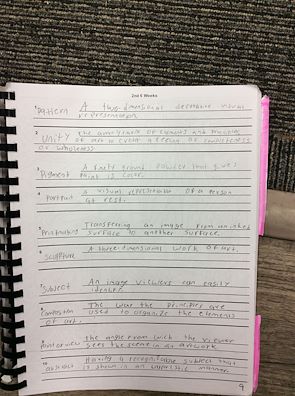 2nd 6 Weeks
1 Pattern A two-dimensional decorative visual
representation
2 Unity The arrangement of elements and principles
of art to create a feeling of completeness
or wholeness
3 Pigment A finely ground powder that gives
paint its color.
4 Portrait A visual representation of a person
at rest.
5 Printmaking Transfering an image from an inked
surface to another surface.
6 sculpture A three-dimensional work of art.
7 Subject An image viewers can easily
identify.
8 Composition The way the principles are
used to organize the elements
of art.
9 Point of view the angle from which the viewer
sees the scene in an artwork
10 abstract Having a recognizable subject that
is shown in an manner.
9